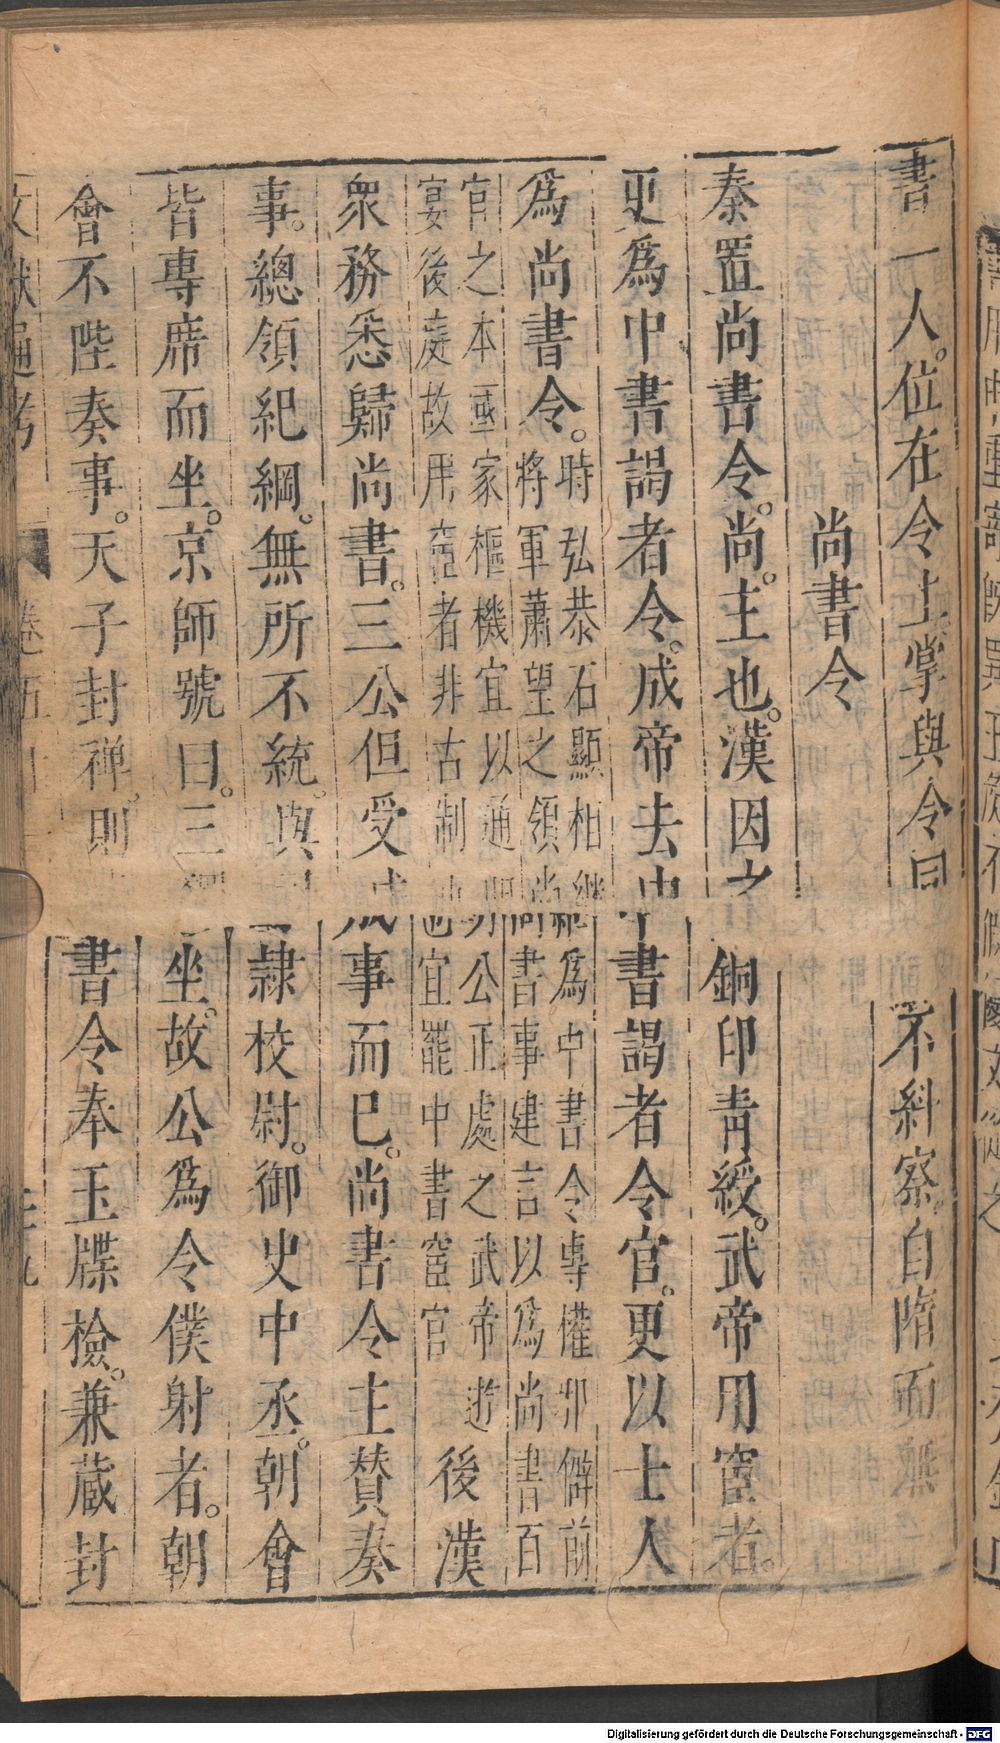 書一人。位在令上掌與令同不糾察自隋而無
尚書令
秦置尚書令。尚。主也。漢因之銅印青綬。武帝用宦者。
更爲中書謁者令。成帝去中書謁者令官。更以士人
爲尚書令。時弘恭石顯相繼爲中書令專權邪僻前
將軍蕭望之領尚書事建言以爲尚書百
官之本國家樞機宜以通明公正處之武帝遊
宴後庭故用宦者非古制也宜罷中書宦官後漢
衆務悉歸尚書。三公但受成事而已。尚書令主贊奏
事。總領紀綱。無所不統。與司隸校尉。御史中丞。朝會
皆專席而坐。京師號曰。三獨坐。故公爲令僕射者。朝
會不陛奏事。天子封禅。則尚書令奉玉牒檢。兼蔵封
文獻通考 卷五十
Digitalisierung gefördert durch die Deutsche Forschungsgemeinschaft - DFG